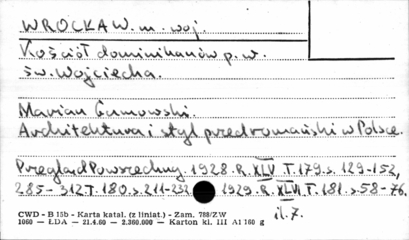 WROCŁAW. m. woj
Kościół dominikanów p.w.
św. Wojciecha.
Marian Gumowski.
Architektura i styl przedromański w Polsce.
Przegląd Powszechny. 1928. R. XLV T. 179. s. 129-152,
285-312 T. 180. s. 211-232 1929. R. XLVI T. 181. s. 58-76.
il. 7.
CWD - B 15b - Karta katal. (z liniat.) - Zam. 788/ZW
1060 — ŁDA — 21.4.60 — 2.360.000 — Karton kl. III A1 160 g